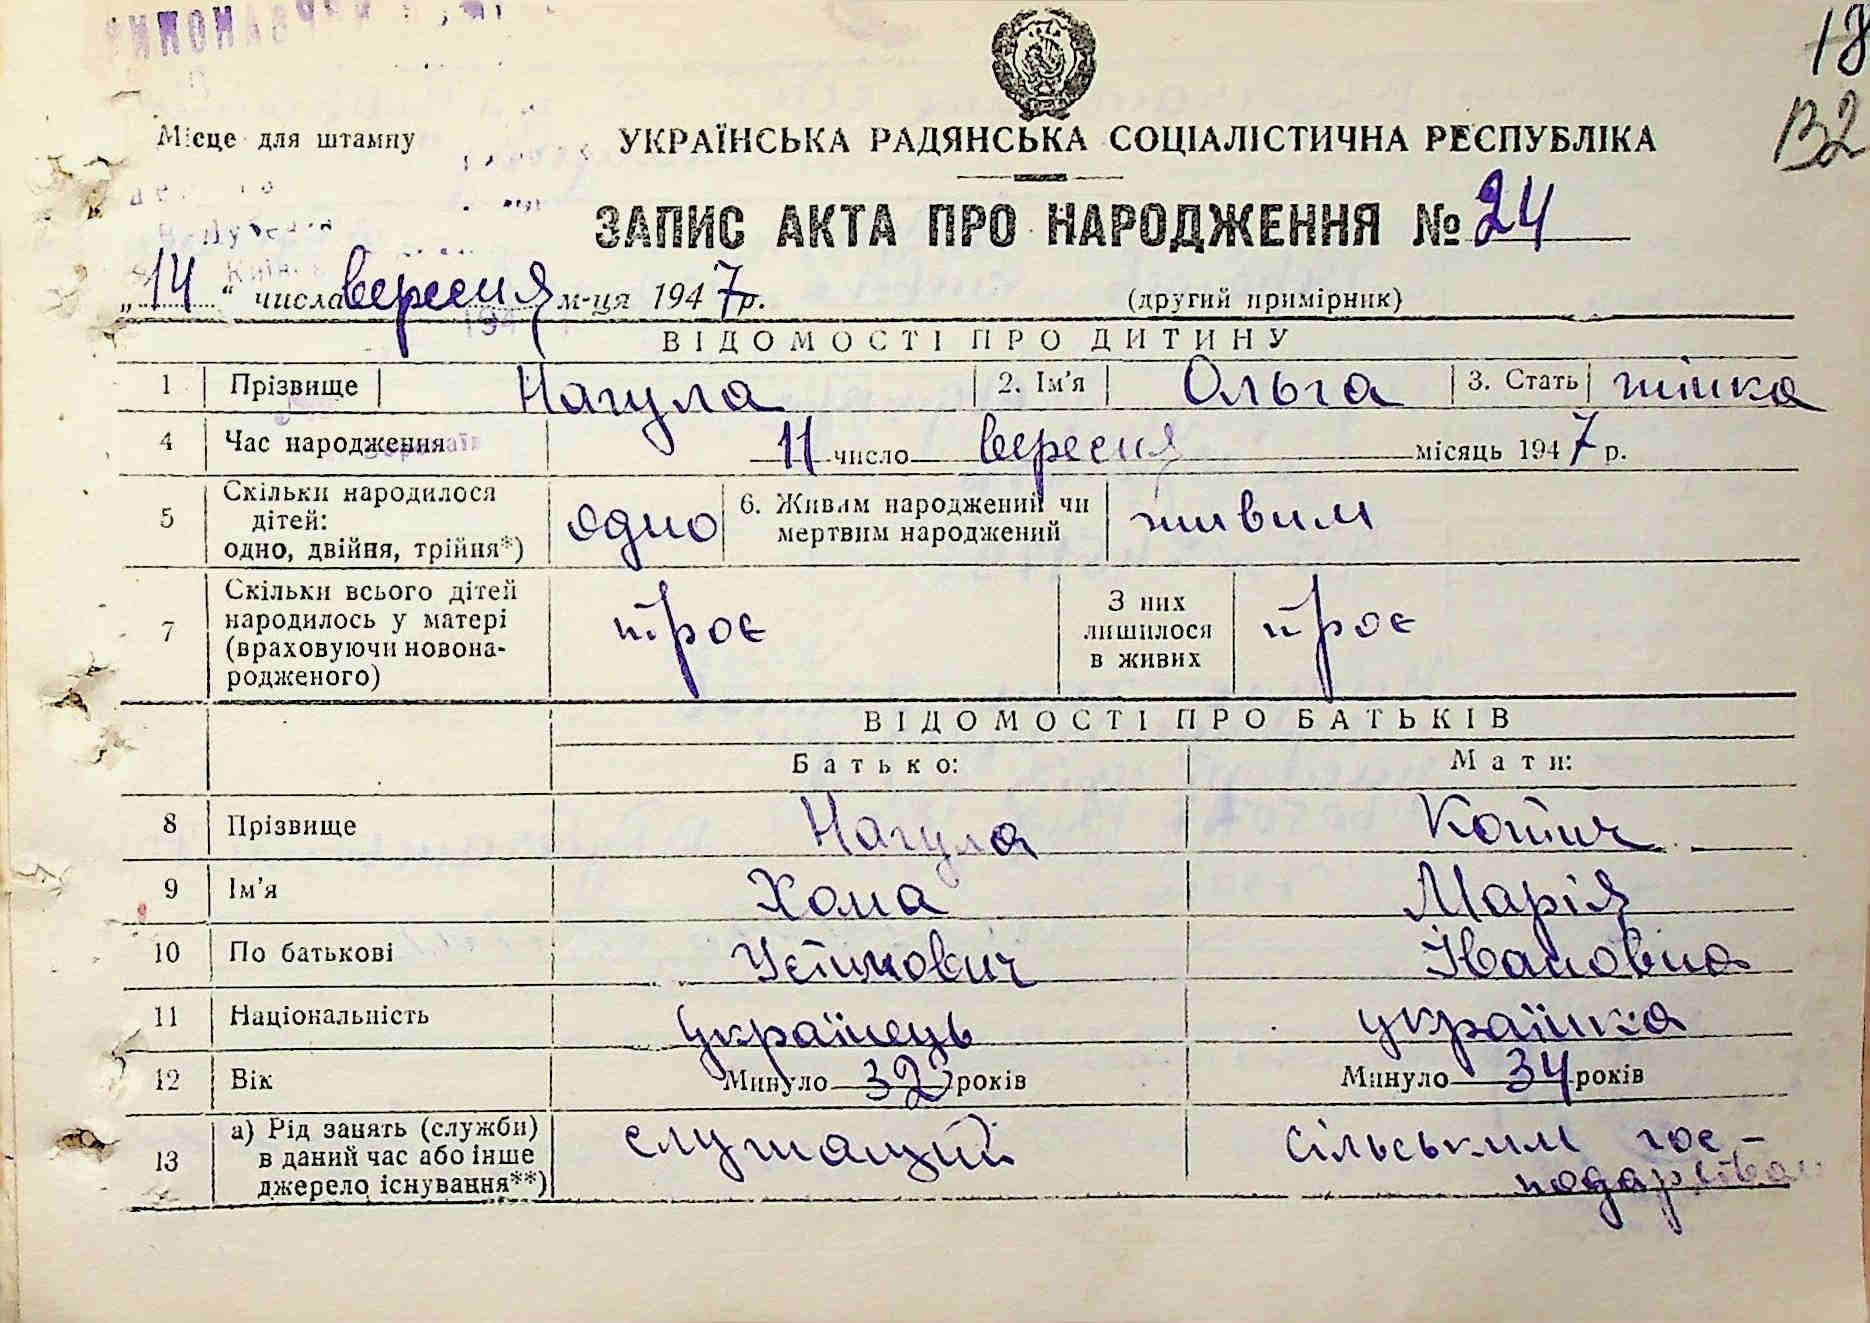 18
В2
Місце для штампу
УКРАЇНСЬКА РАДЯНСЬКА СОЦІАЛІСТИЧНА РЕСПУБЛІКА
ЗАПИС АКТА ПРО НАРОДЖЕННЯ № 24
„14“ числа вересня м-ця 1947 р. (другий примірник)
ВІДОМОСТІ ПРО ДИТИНУ
1 Прізвище Нагула 2. Ім'я Ольга 3. Стать жінка
4 Час народження 11 число вересня місяць 1947 р.
5 Скільки народилося дітей: одно, двійня, трійня*) одно 6. Живим народжений чи мертвим народжений живим
7 Скільки всього дітей народилось у матері (враховуючи новонародженого) троє З них лишилося в живих троє
ВІДОМОСТІ ПРО БАТЬКІВ
Батько: Мати:
8 Прізвище Нагула Котич
9 Ім'я Хома Марія
10 По батькові Устимович Івановна
11 Національність українець українка
12 Вік Минуло 32 років Минуло 34 років
13 а) Рід занять (служби) в даний час або інше джерело існування**) служащий сільським господарством